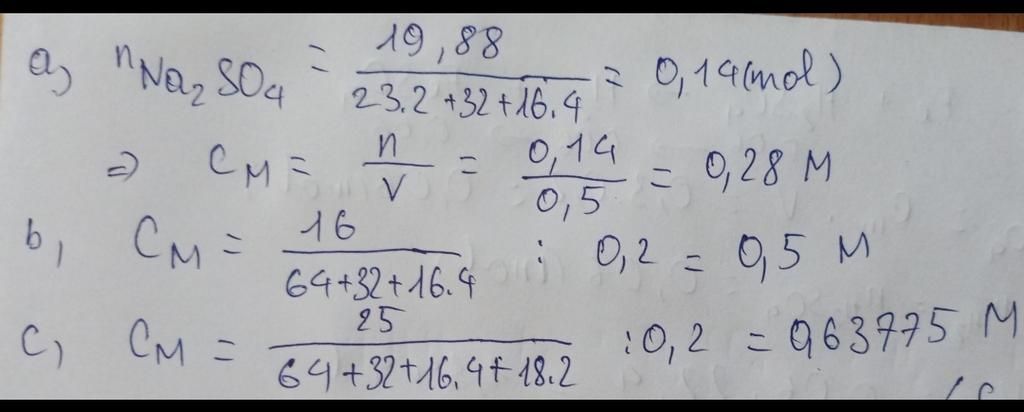 a, nNa₂SO₄ = 19,88 / (23.2 + 32 + 16.4) = 0,14 (mol)
=> CM = n / V = 0,14 / 0,5 = 0,28 M
b, CM = 16 / (64+32+16.4) : 0,2 = 0,5 M
c, CM = 25 / (64+32+16.4+18.2) : 0,2 = 0,63775 M